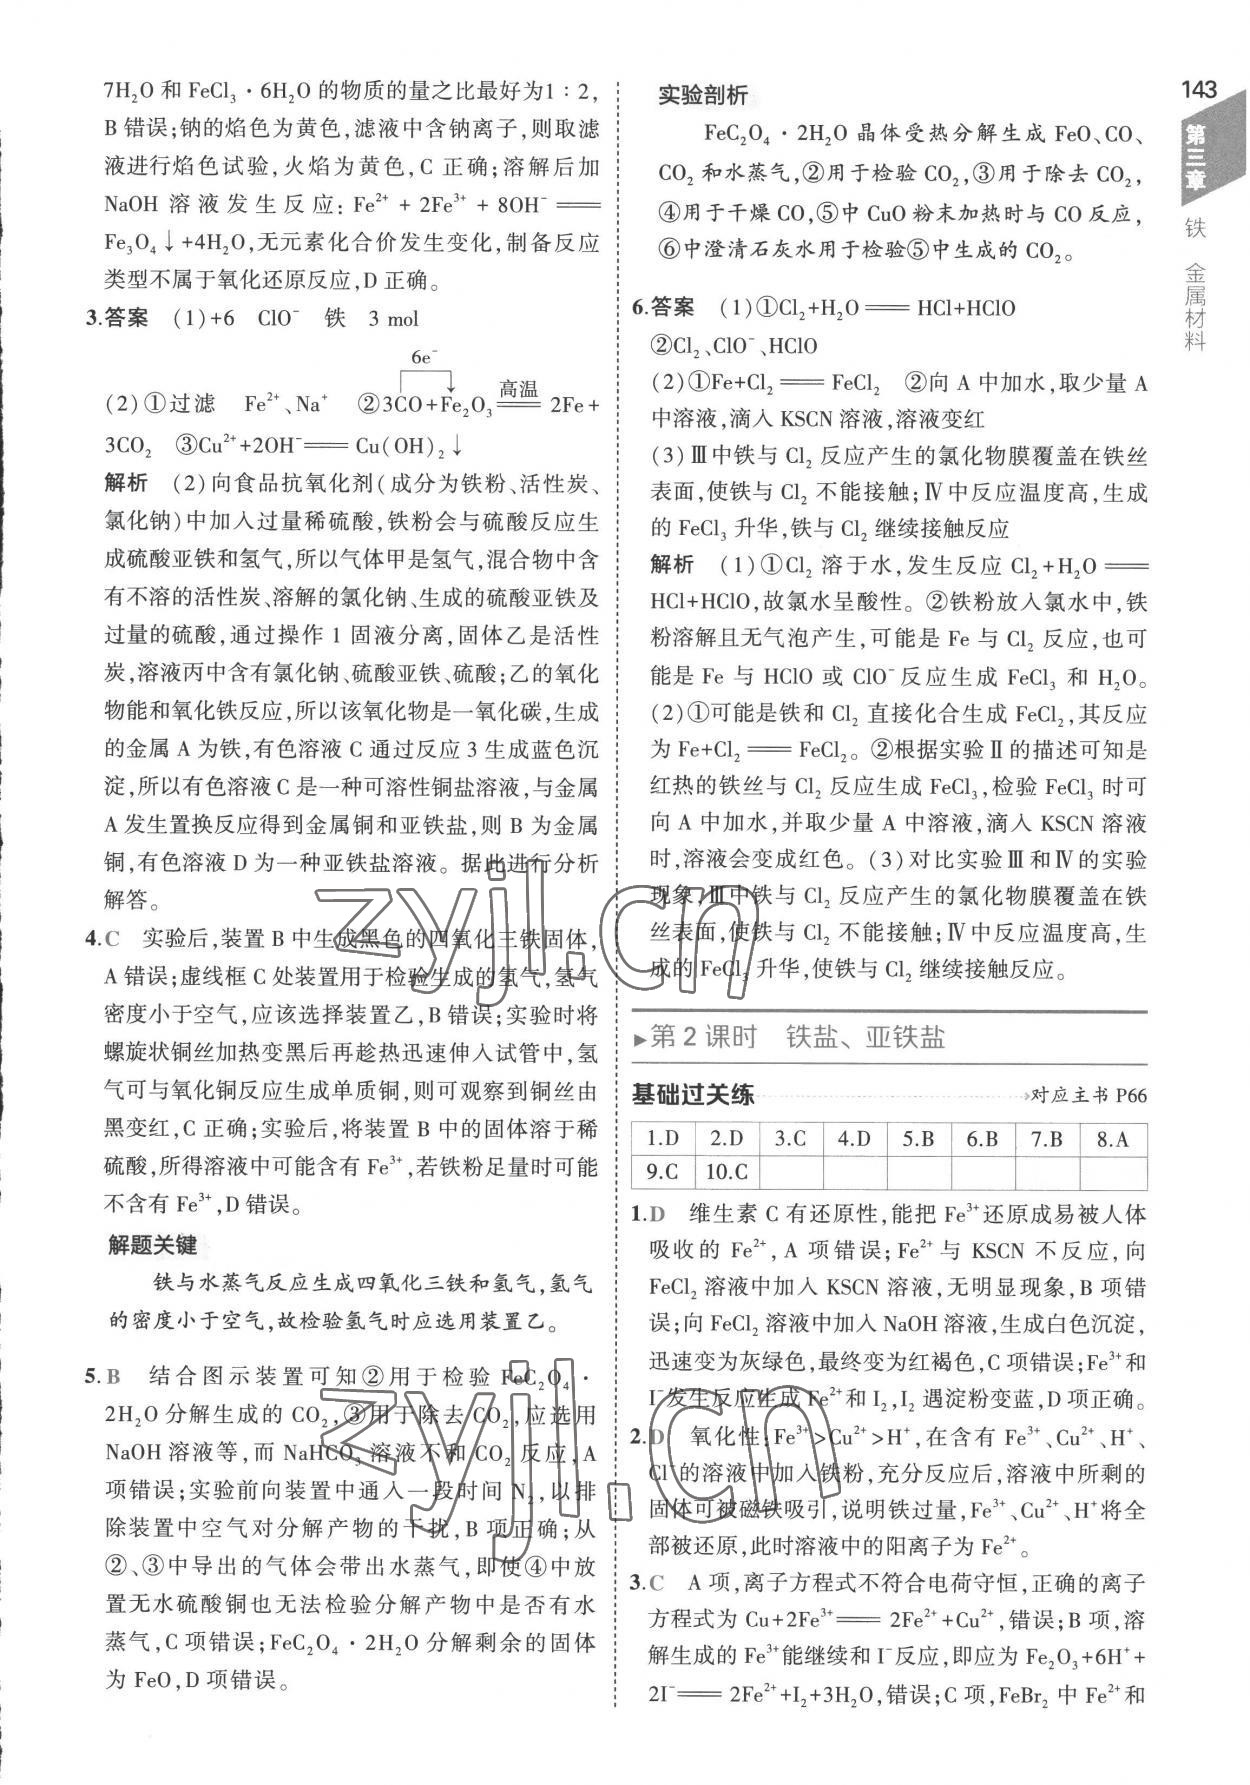 7H₂O 和 FeCl₃·6H₂O 的物质的量之比最好为1∶2,
B 错误;钠的焰色为黄色,滤液中含钠离子,则取滤
液进行焰色试验,火焰为黄色,C 正确;溶解后加
NaOH 溶液发生反应: Fe²⁺ + 2Fe³⁺ + 8OH⁻ ══
Fe₃O₄↓+4H₂O,无元素化合价发生变化,制备反应
类型不属于氧化还原反应,D 正确。
3.答案 (1)+6 ClO⁻ 铁 3 mol
6e⁻
(2)①过滤 Fe²⁺、Na⁺ ②3CO+Fe₂O₃ ══高温 2Fe+
3CO₂ ③Cu²⁺+2OH⁻══ Cu(OH)₂↓
解析 (2)向食品抗氧化剂(成分为铁粉、活性炭、
氯化钠)中加入过量稀硫酸,铁粉会与硫酸反应生
成硫酸亚铁和氢气,所以气体甲是氢气,混合物中含
有不溶的活性炭、溶解的氯化钠、生成的硫酸亚铁及
过量的硫酸,通过操作 1 固液分离,固体乙是活性
炭,溶液丙中含有氯化钠、硫酸亚铁、硫酸;乙的氧化
物能和氧化铁反应,所以该氧化物是一氧化碳,生成
的金属 A 为铁,有色溶液 C 通过反应 3 生成蓝色沉
淀,所以有色溶液 C 是一种可溶性铜盐溶液,与金属
A 发生置换反应得到金属铜和亚铁盐,则 B 为金属
铜,有色溶液 D 为一种亚铁盐溶液。据此进行分析
解答。
4.C 实验后,装置 B 中生成黑色的四氧化三铁固体,
A 错误;虚线框 C 处装置用于检验生成的氢气,氢气
密度小于空气,应该选择装置乙,B 错误;实验时将
螺旋状铜丝加热变黑后再趁热迅速伸入试管中,氢
气可与氧化铜反应生成单质铜,则可观察到铜丝由
黑变红,C 正确;实验后,将装置 B 中的固体溶于稀
硫酸,所得溶液中可能含有 Fe³⁺,若铁粉足量时可能
不含有 Fe³⁺,D 错误。
解题关键
铁与水蒸气反应生成四氧化三铁和氢气,氢气
的密度小于空气,故检验氢气时应选用装置乙。
5.B 结合图示装置可知②用于检验 FeC₂O₄·
2H₂O 分解生成的 CO₂,③用于除去 CO₂,应选用
NaOH 溶液等,而 NaHCO₃ 溶液不和 CO₂ 反应,A
项错误;实验前向装置中通入一段时间 N₂,以排
除装置中空气对分解产物的干扰,B 项正确;从
②、③中导出的气体会带出水蒸气,即使④中放
置无水硫酸铜也无法检验分解产物中是否有水
蒸气,C 项错误;FeC₂O₄·2H₂O 分解剩余的固体
为 FeO,D 项错误。
实验剖析
FeC₂O₄·2H₂O 晶体受热分解生成 FeO、CO、
CO₂ 和水蒸气,②用于检验 CO₂,③用于除去 CO₂,
④用于干燥 CO,⑤中 CuO 粉末加热时与 CO 反应,
⑥中澄清石灰水用于检验⑤中生成的 CO₂。
6.答案 (1)①Cl₂+H₂O ══ HCl+HClO
②Cl₂、ClO⁻、HClO
(2)①Fe+Cl₂ ══ FeCl₂ ②向 A 中加水,取少量 A
中溶液,滴入 KSCN 溶液,溶液变红
(3)Ⅲ中铁与 Cl₂ 反应产生的氯化物膜覆盖在铁丝
表面,使铁与 Cl₂ 不能接触;Ⅳ中反应温度高,生成
的 FeCl₃ 升华,铁与 Cl₂ 继续接触反应
解析 (1)①Cl₂ 溶于水,发生反应 Cl₂+H₂O ══
HCl+HClO,故氯水呈酸性。②铁粉放入氯水中,铁
粉溶解且无气泡产生,可能是 Fe 与 Cl₂ 反应,也可
能是 Fe 与 HClO 或 ClO⁻反应生成 FeCl₃ 和 H₂O。
(2)①可能是铁和 Cl₂ 直接化合生成 FeCl₂,其反应
为 Fe+Cl₂ ══ FeCl₂。②根据实验Ⅱ的描述可知是
红热的铁丝与 Cl₂ 反应生成 FeCl₃,检验 FeCl₃ 时可
向 A 中加水,并取少量 A 中溶液,滴入 KSCN 溶液
时,溶液会变成红色。(3)对比实验Ⅲ和Ⅳ的实验
现象,Ⅲ中铁与 Cl₂ 反应产生的氯化物膜覆盖在铁
丝表面,使铁与 Cl₂ 不能接触;Ⅳ中反应温度高,生
成的 FeCl₃ 升华,使铁与 Cl₂ 继续接触反应。
第 2 课时 铁盐、亚铁盐
基础过关练 对应主书 P66
1.D 2.D 3.C 4.D 5.B 6.B 7.B 8.A
9.C 10.C
1.D 维生素 C 有还原性,能把 Fe³⁺还原成易被人体
吸收的 Fe²⁺,A 项错误;Fe²⁺与 KSCN 不反应,向
FeCl₂ 溶液中加入 KSCN 溶液,无明显现象,B 项错
误;向 FeCl₂ 溶液中加入 NaOH 溶液,生成白色沉淀,
迅速变为灰绿色,最终变为红褐色,C 项错误;Fe³⁺和
I⁻发生反应生成 Fe²⁺和 I₂,I₂ 遇淀粉变蓝,D 项正确。
2.D 氧化性:Fe³⁺>Cu²⁺>H⁺,在含有 Fe³⁺、Cu²⁺、H⁺、
Cl⁻的溶液中加入铁粉,充分反应后,溶液中所剩的
固体可被磁铁吸引,说明铁过量,Fe³⁺、Cu²⁺、H⁺将全
部被还原,此时溶液中的阳离子为 Fe²⁺。
3.C A 项,离子方程式不符合电荷守恒,正确的离子
方程式为 Cu+2Fe³⁺══ 2Fe²⁺+Cu²⁺,错误;B 项,溶
解生成的 Fe³⁺能继续和 I⁻反应,即应为 Fe₂O₃+6H⁺+
2I⁻══ 2Fe²⁺+I₂+3H₂O,错误;C 项,FeBr₂ 中 Fe²⁺和
143
第三章
铁 金属材料
zyjl.cn
zyjl.cn